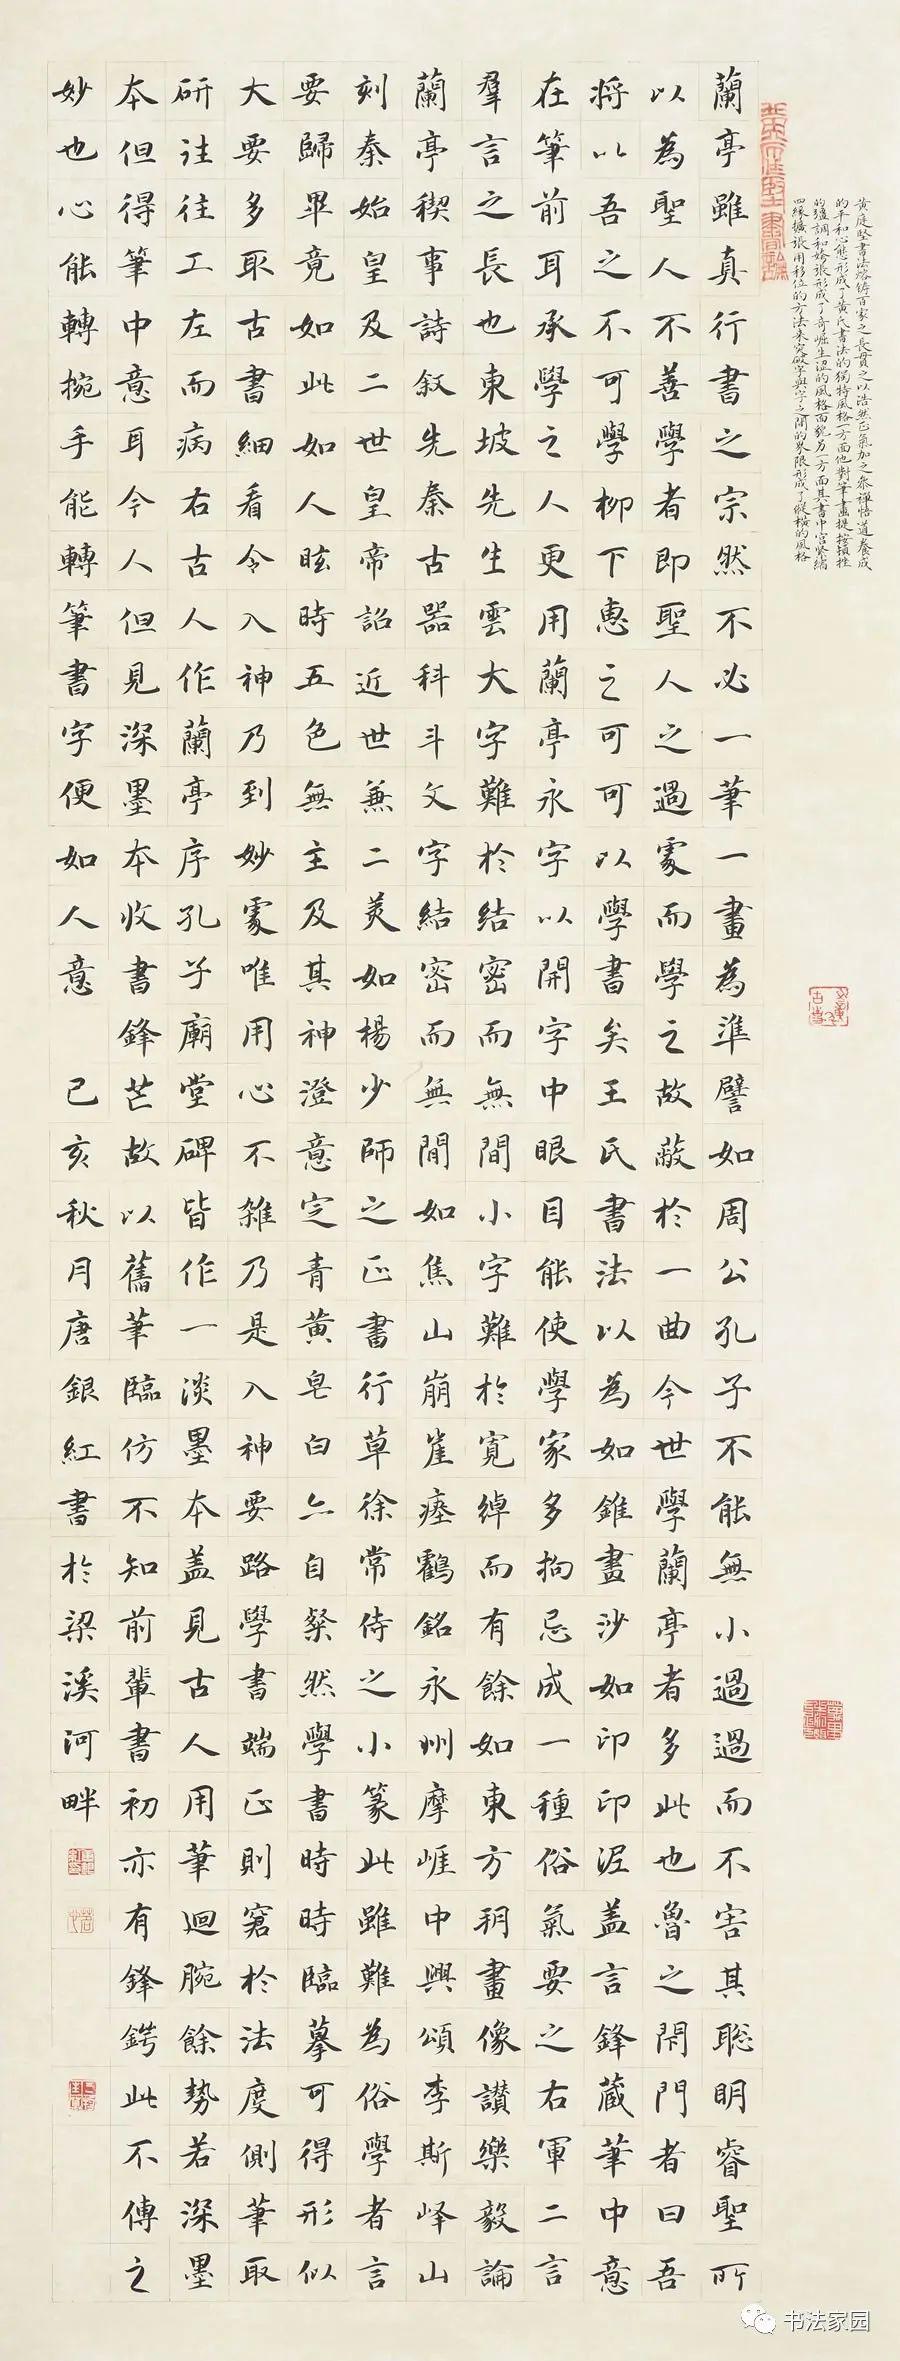 黄庭堅書法熔鑄百家之長貫之以浩然正氣加之參禪悟道養成
的平和心態形成了黄氏書法的獨特風格一方面他對筆畫提按頓挫
的強調和誇張形成了奇崛生澀的風格面貌另一方面其書中宫緊縮
四緣擴張用移位的方法来突破字與字之間的界限形成了縱橫的風格
蘭亭雖真行書之宗然不必一筆一畫為準譬如周公孔子不能無小過過而不害其聡明睿聖所
以為聖人不善學者即聖人之過處而學之故蔽於一曲今世學蘭亭者多此也魯之閇門者曰吾
将以吾之不可學柳下惠之可可以學書矣王氏書法以為如錐畫沙如印印泥盖言鋒藏筆中意
在筆前耳承學之人更用蘭亭永字以開字中眼目能使學家多拘忌成一種俗氣要之右軍二言
羣言之長也東坡先生雲大字難於結密而無間小字難於寬綽而有餘如東方朔畫像讃樂毅論
蘭亭禊事詩叙先秦古器科斗文字結密而無間如焦山崩崖瘞鶴銘永州摩崖中興頌李斯嶧山
刻秦始皇及二世皇帝詔近世兼二美如楊少師之正書行草徐常侍之小篆此雖難為俗學者言
要歸畢竟如此如人眩時五色無主及其神澄意定青黄皂白亦自粲然學書時時臨摹可得形似
大要多取古書細看令入神乃到妙處唯用心不雜乃是入神要路學書端正則窘於法度側筆取
研往往工左而病右古人作蘭亭序孔子廟堂碑皆作一淡墨本盖見古人用筆迴腕餘勢若深墨
本但得筆中意耳今人但見深墨本收書鋒芒故以舊筆臨仿不知前輩書初亦有鋒鍔此不傳之
妙也心能轉捥手能轉筆書字便如人意 己亥秋月唐銀紅書於梁溪河畔
书法家园